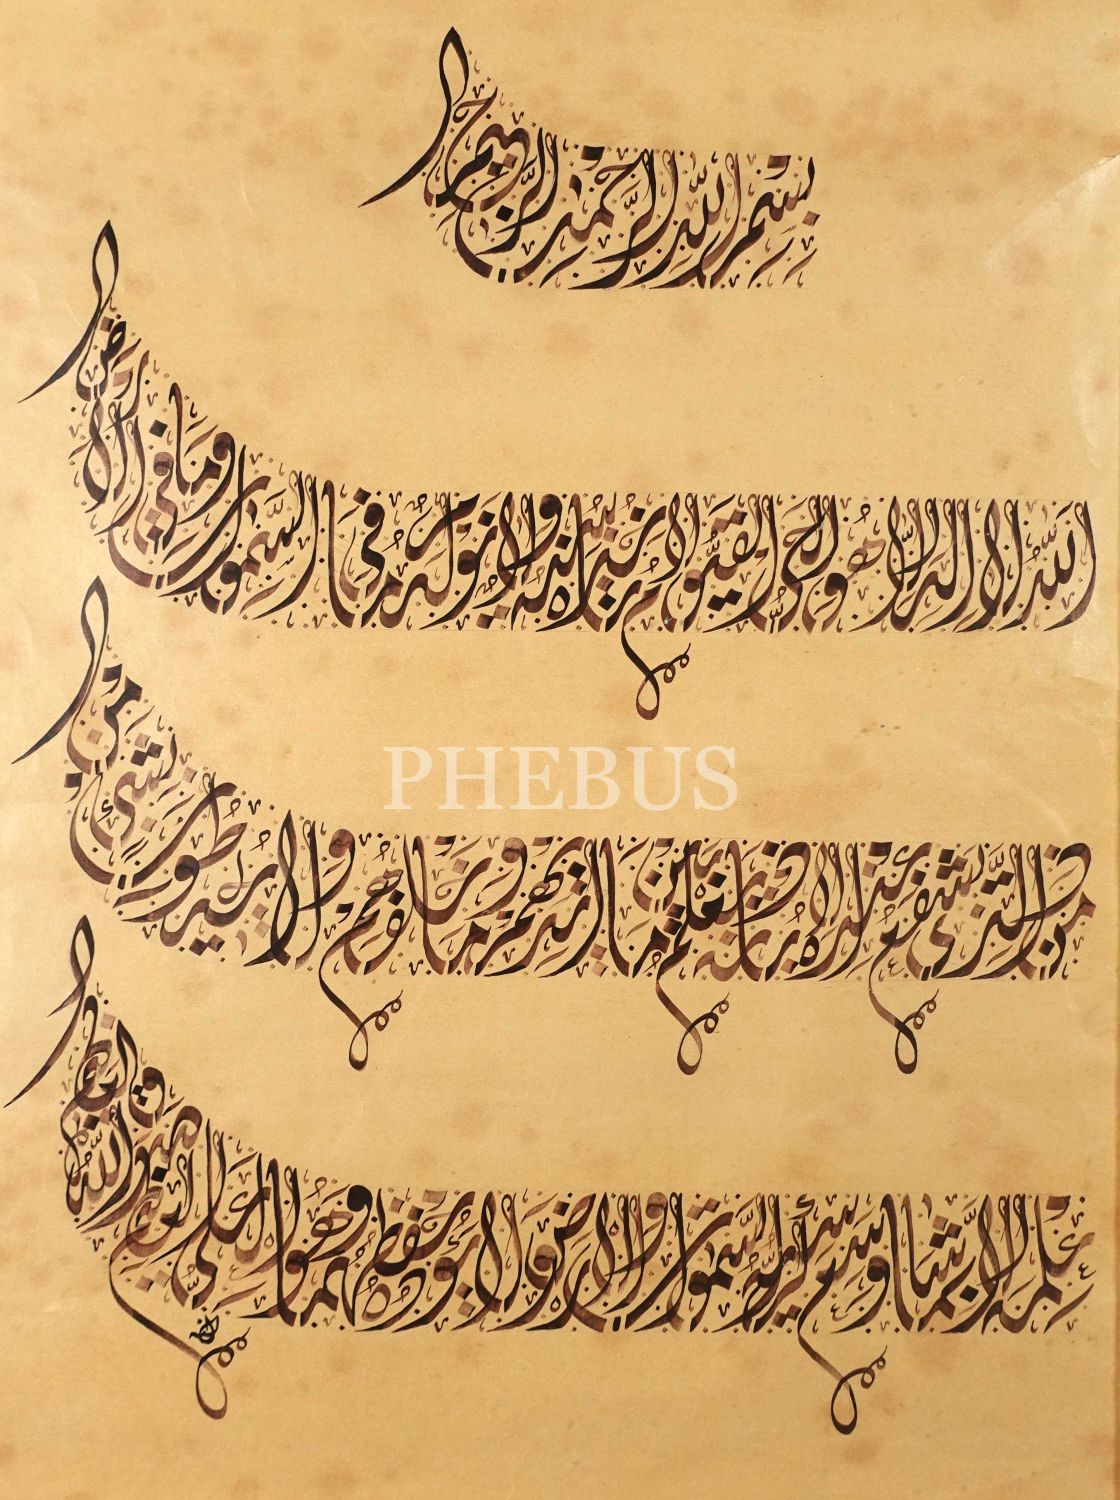 بسم الله الرحمن الرحيم
الله لا اله الا هو الحي القيوم لا تأخذه سنة ولا نوم له ما في السموات وما في الارض
من ذا الذي يشفع عنده الا باذنه يعلم ما بين ايديهم وما خلفهم ولا يحيطون بشيء من
PHEBUS
علمه الا بما شاء وسع كرسيه السموات والارض ولا يؤده حفظهما وهو العلي العظيم صدق الله العظيم